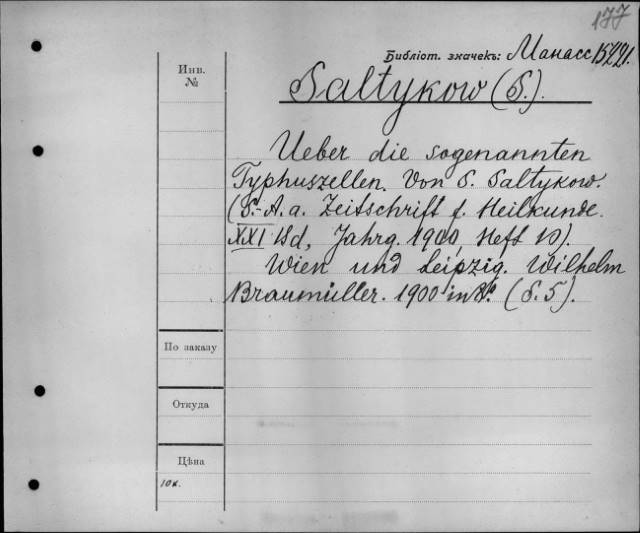 177
Библіот. значекъ: Манасс 15221.
Инв. №
Saltykow (S.).
Ueber die sogenannten
Typhuszellen. Von S. Saltykow.
(S.-A. a. Zeitschrift f. Heilkunde.
XXI Bd, Jahrg. 1900, Heft 10).
Wien und Leipzig. Wilhelm
Braumüller. 1900 in 8º. (S. 5).
По заказу
Откуда
Цѣна
10 к.